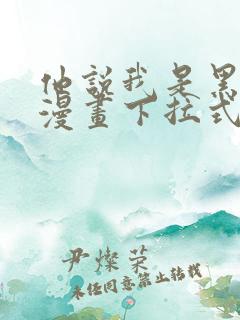 他說我是黑
漫畫下拉式
尹燦榮
未經同意禁止轉載